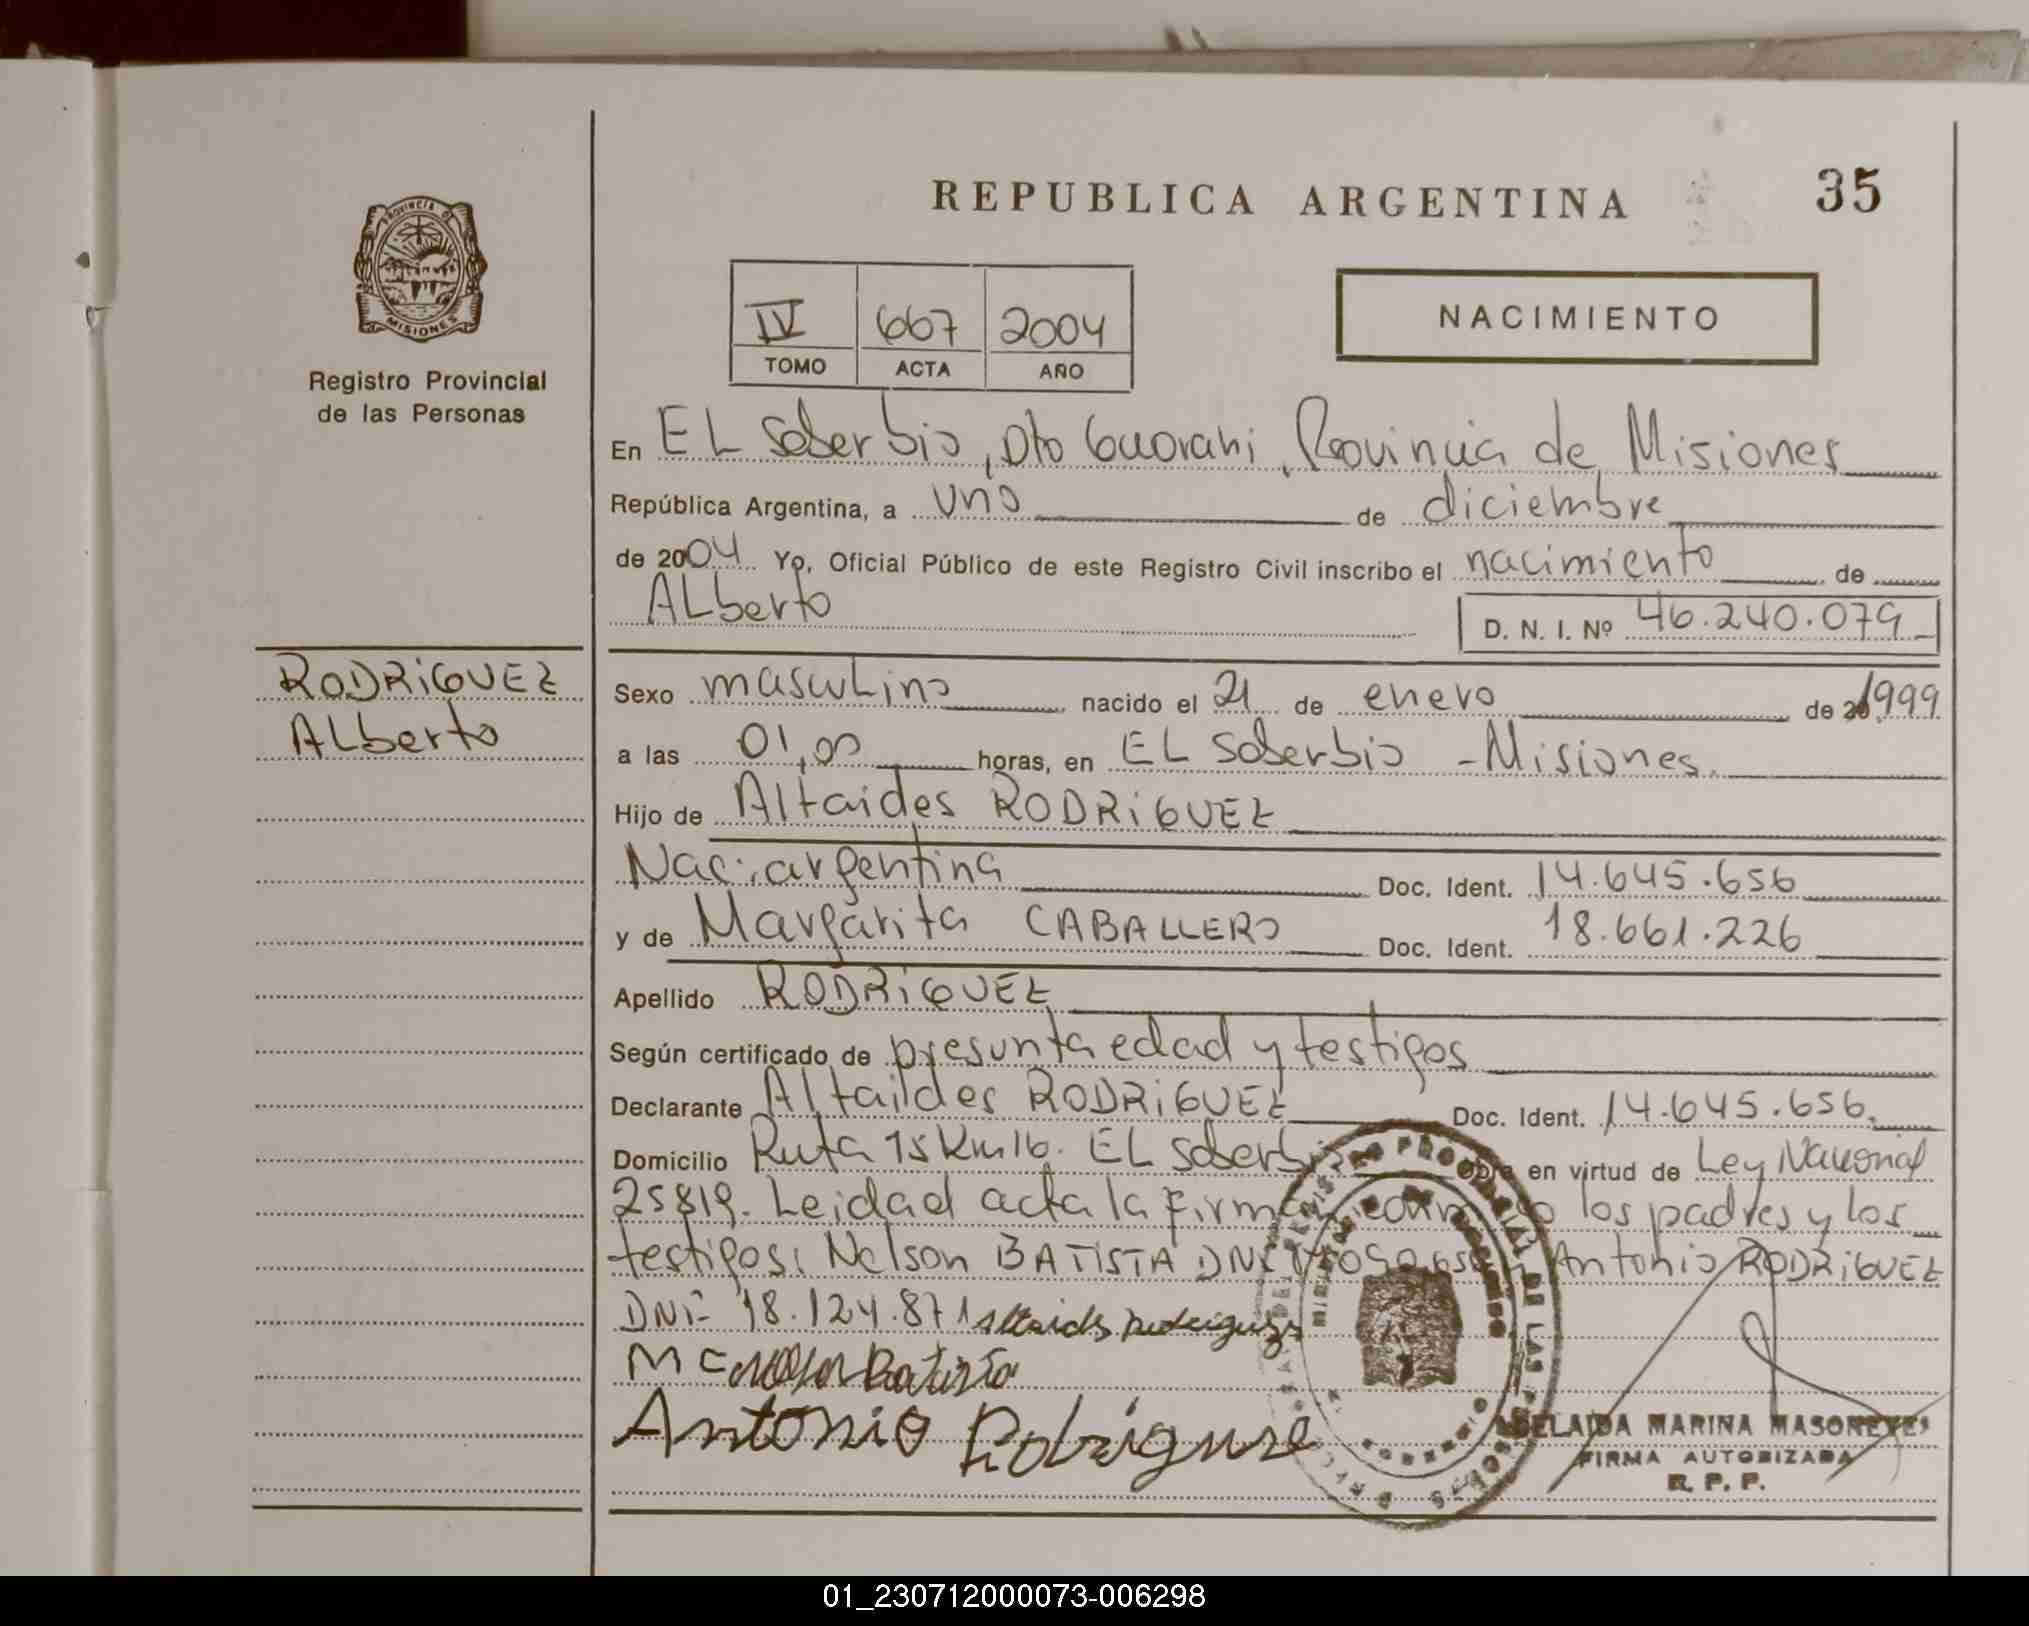 REPUBLICA ARGENTINA 35
PROVINCIA DE
MISIONES
Registro Provincial
de las Personas
IV 667 2004
TOMO ACTA AÑO
NACIMIENTO
En EL Soberbio, Dto Guarani, Provincia de Misiones
República Argentina, a uno de diciembre
de 2004 Yo, Oficial Público de este Registro Civil inscribo el nacimiento de
ALberto
D. N. I. Nº 46.240.079
RODRiGUEZ
Alberto
Sexo mascuLino nacido el 21 de enero de 1999
a las 01,00 horas, en EL Soberbio - Misiones.
Hijo de Altaides RODRiGUEZ
Nac: argentina Doc. Ident. 14.645.656
y de Margarita CABALLERO Doc. Ident. 18.661.226
Apellido RODRiGUEZ
Según certificado de presunta edad y testigos
Declarante Altaides RODRiGUEZ Doc. Ident. 14.645.656.
Domicilio Ruta 15 Km 16. EL Soberbio Obra en virtud de Ley Nacional
25819. Leidad acta la firman los padres y los
testigos: Nelson BATiSTA DNi Antonio RODRiGUEZ
DNi= 18.124.871 Altaides Rodriguez
M C Nelson Batista
Antonio Rodriguez
ADELAIDA MARINA MASONEYES
FIRMA AUTORIZADA
R. P. P.
01_230712000073-006298